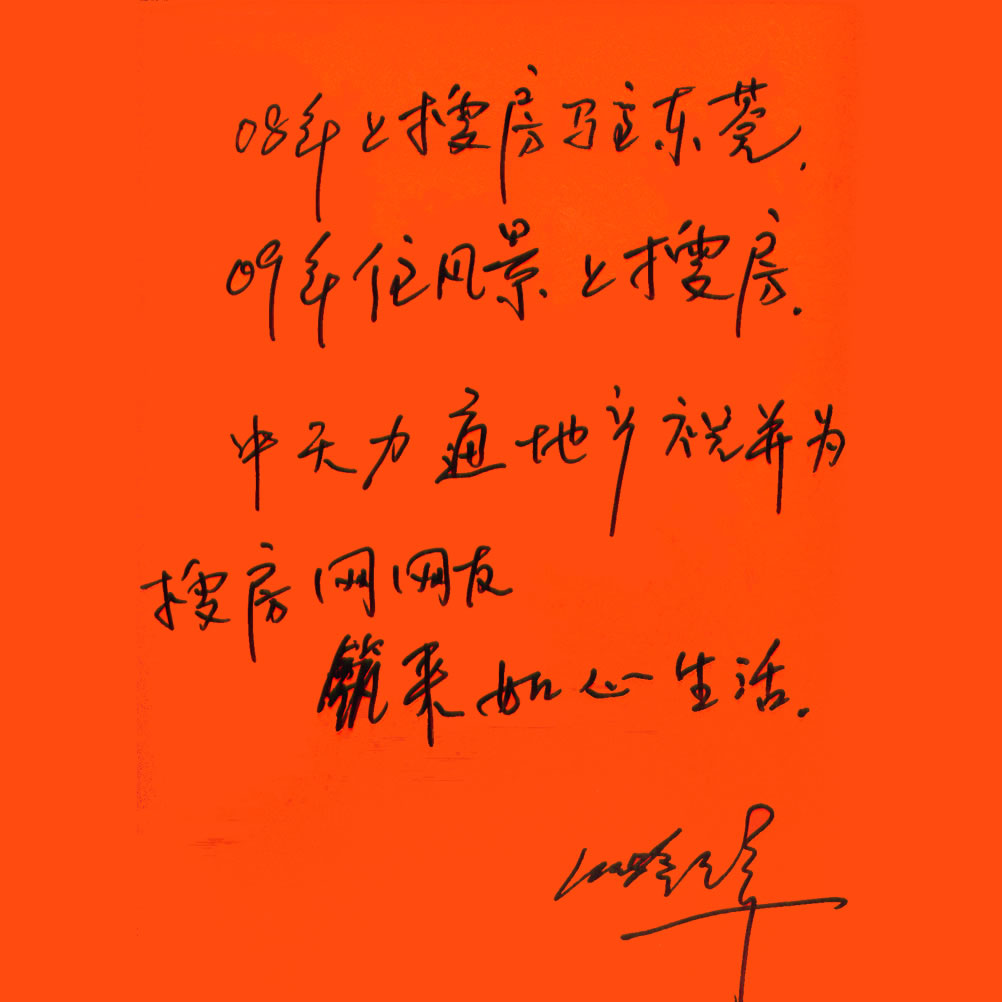 08年上搜房驻东莞.
09年住风景上搜房.
中天力通地产祝并为
搜房网网友
筑来如心生活.